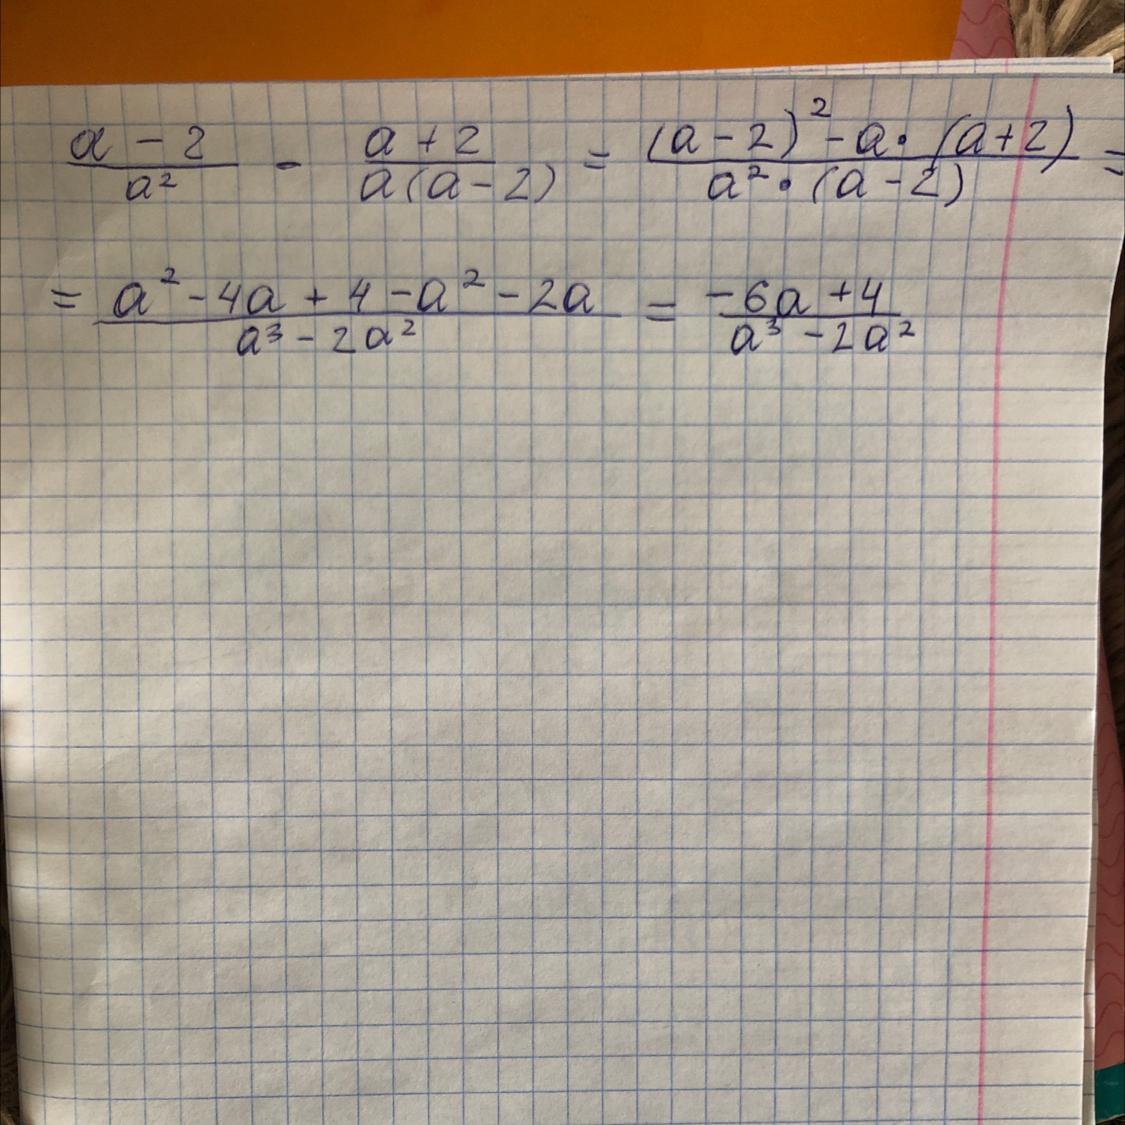 (a - 2)/a² - (a + 2)/(a(a - 2)) = ((a - 2)² - a · (a + 2))/(a² · (a - 2)) =
= (a² - 4a + 4 - a² - 2a)/(a³ - 2a²) = (-6a + 4)/(a³ - 2a²)